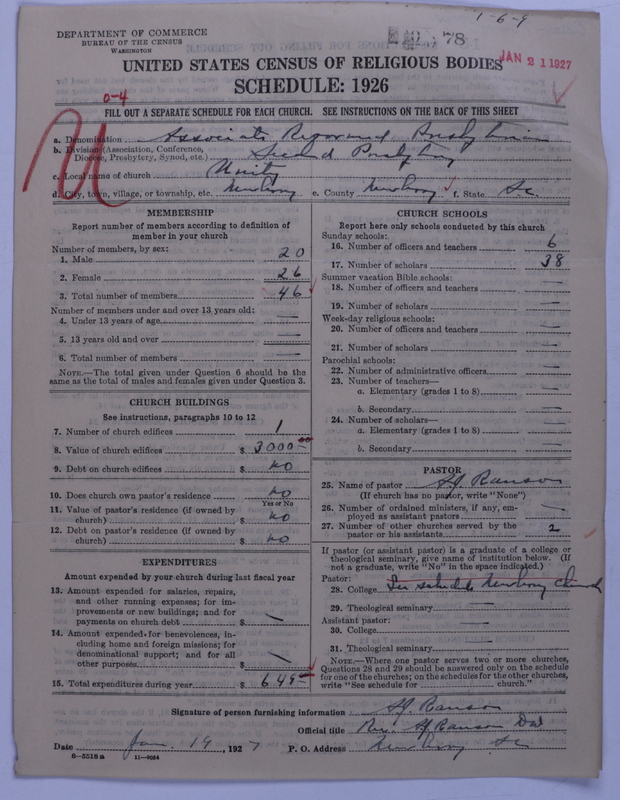 1-6-9
78
JAN 21 1927
DEPARTMENT OF COMMERCE
BUREAU OF THE CENSUS
WASHINGTON
UNITED STATES CENSUS OF RELIGIOUS BODIES
SCHEDULE: 1926
0-4
FILL OUT A SEPARATE SCHEDULE FOR EACH CHURCH. SEE INSTRUCTIONS ON THE BACK OF THIS SHEET
a. Denomination Associate Reformed Presbyterian
b. Division (Association, Conference,
Diocese, Presbytery, Synod, etc.) Second Presbytery
c. Local name of church Unity
d. City, town, village, or township, etc. Newberry e. County Newberry f. State S.C.
MEMBERSHIP
Report number of members according to definition of
member in your church
Number of members, by sex:
1. Male 20
2. Female 26
3. Total number of members 46
Number of members under and over 13 years old:
4. Under 13 years of age —
5. 13 years old and over —
6. Total number of members —
NOTE.—The total given under Question 6 should be the
same as the total of males and females given under Question 3.
CHURCH BUILDINGS
See instructions, paragraphs 10 to 12
7. Number of church edifices 1
8. Value of church edifices $ 3000.00
9. Debt on church edifices $ no
10. Does church own pastor's residence no
Yes or No
11. Value of pastor's residence (if owned by
church) $ no
12. Debt on pastor's residence (if owned by
church) $ no
EXPENDITURES
Amount expended by your church during last fiscal year
13. Amount expended for salaries, repairs,
and other running expenses; for im-
provements or new buildings; and for
payments on church debt $ —
14. Amount expended for benevolences, in-
cluding home and foreign missions; for
denominational support; and for all
other purposes $ —
15. Total expenditures during year $ 649
CHURCH SCHOOLS
Report here only schools conducted by this church
Sunday schools:
16. Number of officers and teachers 6
17. Number of scholars 38
Summer vacation Bible schools:
18. Number of officers and teachers —
19. Number of scholars —
Week-day religious schools:
20. Number of officers and teachers —
21. Number of scholars —
Parochial schools:
22. Number of administrative officers —
23. Number of teachers—
a. Elementary (grades 1 to 8) —
b. Secondary —
24. Number of scholars—
a. Elementary (grades 1 to 8) —
b. Secondary —
PASTOR
25. Name of pastor Ranson
(If church has no pastor, write "None")
26. Number of ordained ministers, if any, em-
ployed as assistant pastors —
27. Number of other churches served by the
pastor or his assistants 2
If pastor (or assistant pastor) is a graduate of a college or
theological seminary, give name of institution below. (If
not a graduate, write "No" in the space indicated.)
Pastor:
28. College See schedule Newberry church
29. Theological seminary —
Assistant pastor:
30. College —
31. Theological seminary —
NOTE.—Where one pastor serves two or more churches,
Questions 28 and 29 should be answered only on the schedule
for one of the churches; on the schedules for the other churches,
write "See schedule for ........ church."
Signature of person furnishing information Ranson
Official title Rev. Ranson
Date Jan. 19, 1927 P. O. Address Newberry S.C.
6—5518 a 11—9024